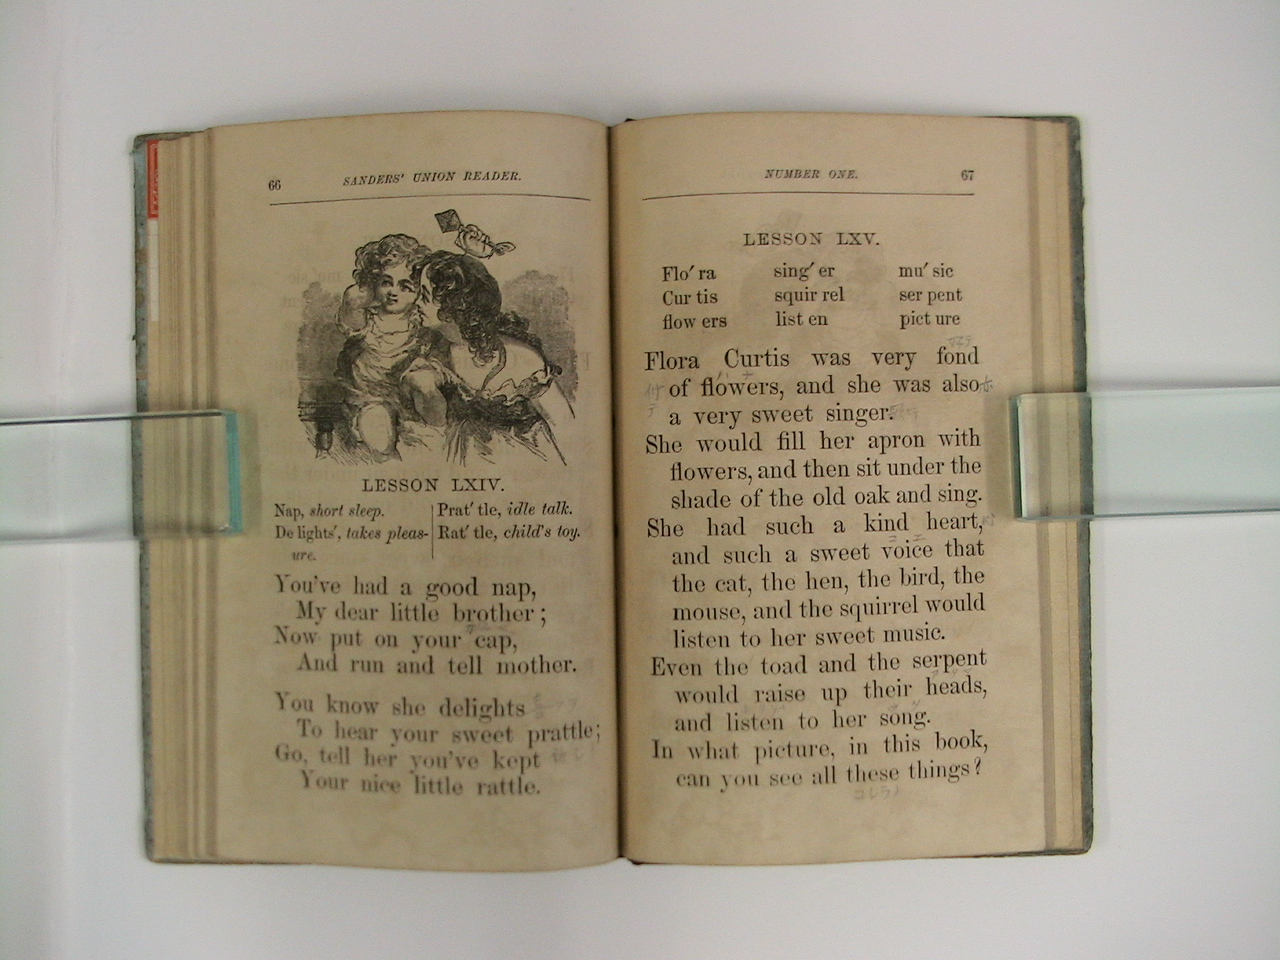 66
SANDERS' UNION READER.
LESSON LXIV.
Nap, short sleep.
De lights', takes pleas-
ure.
Prat' tle, idle talk.
Rat' tle, child's toy.
You've had a good nap,
My dear little brother;
Now put on your cap,
And run and tell mother.
You know she delights
To hear your sweet prattle;
Go, tell her you've kept
Your nice little rattle.
NUMBER ONE.
67
LESSON LXV.
Flo' ra sing' er mu' sic
Cur tis squir rel ser pent
flow ers list en pict ure
Flora Curtis was very fond
of flowers, and she was also
a very sweet singer.
She would fill her apron with
flowers, and then sit under the
shade of the old oak and sing.
She had such a kind heart,
and such a sweet voice that
the cat, the hen, the bird, the
mouse, and the squirrel would
listen to her sweet music.
Even the toad and the serpent
would raise up their heads,
and listen to her song.
In what picture, in this book,
can you see all these things?